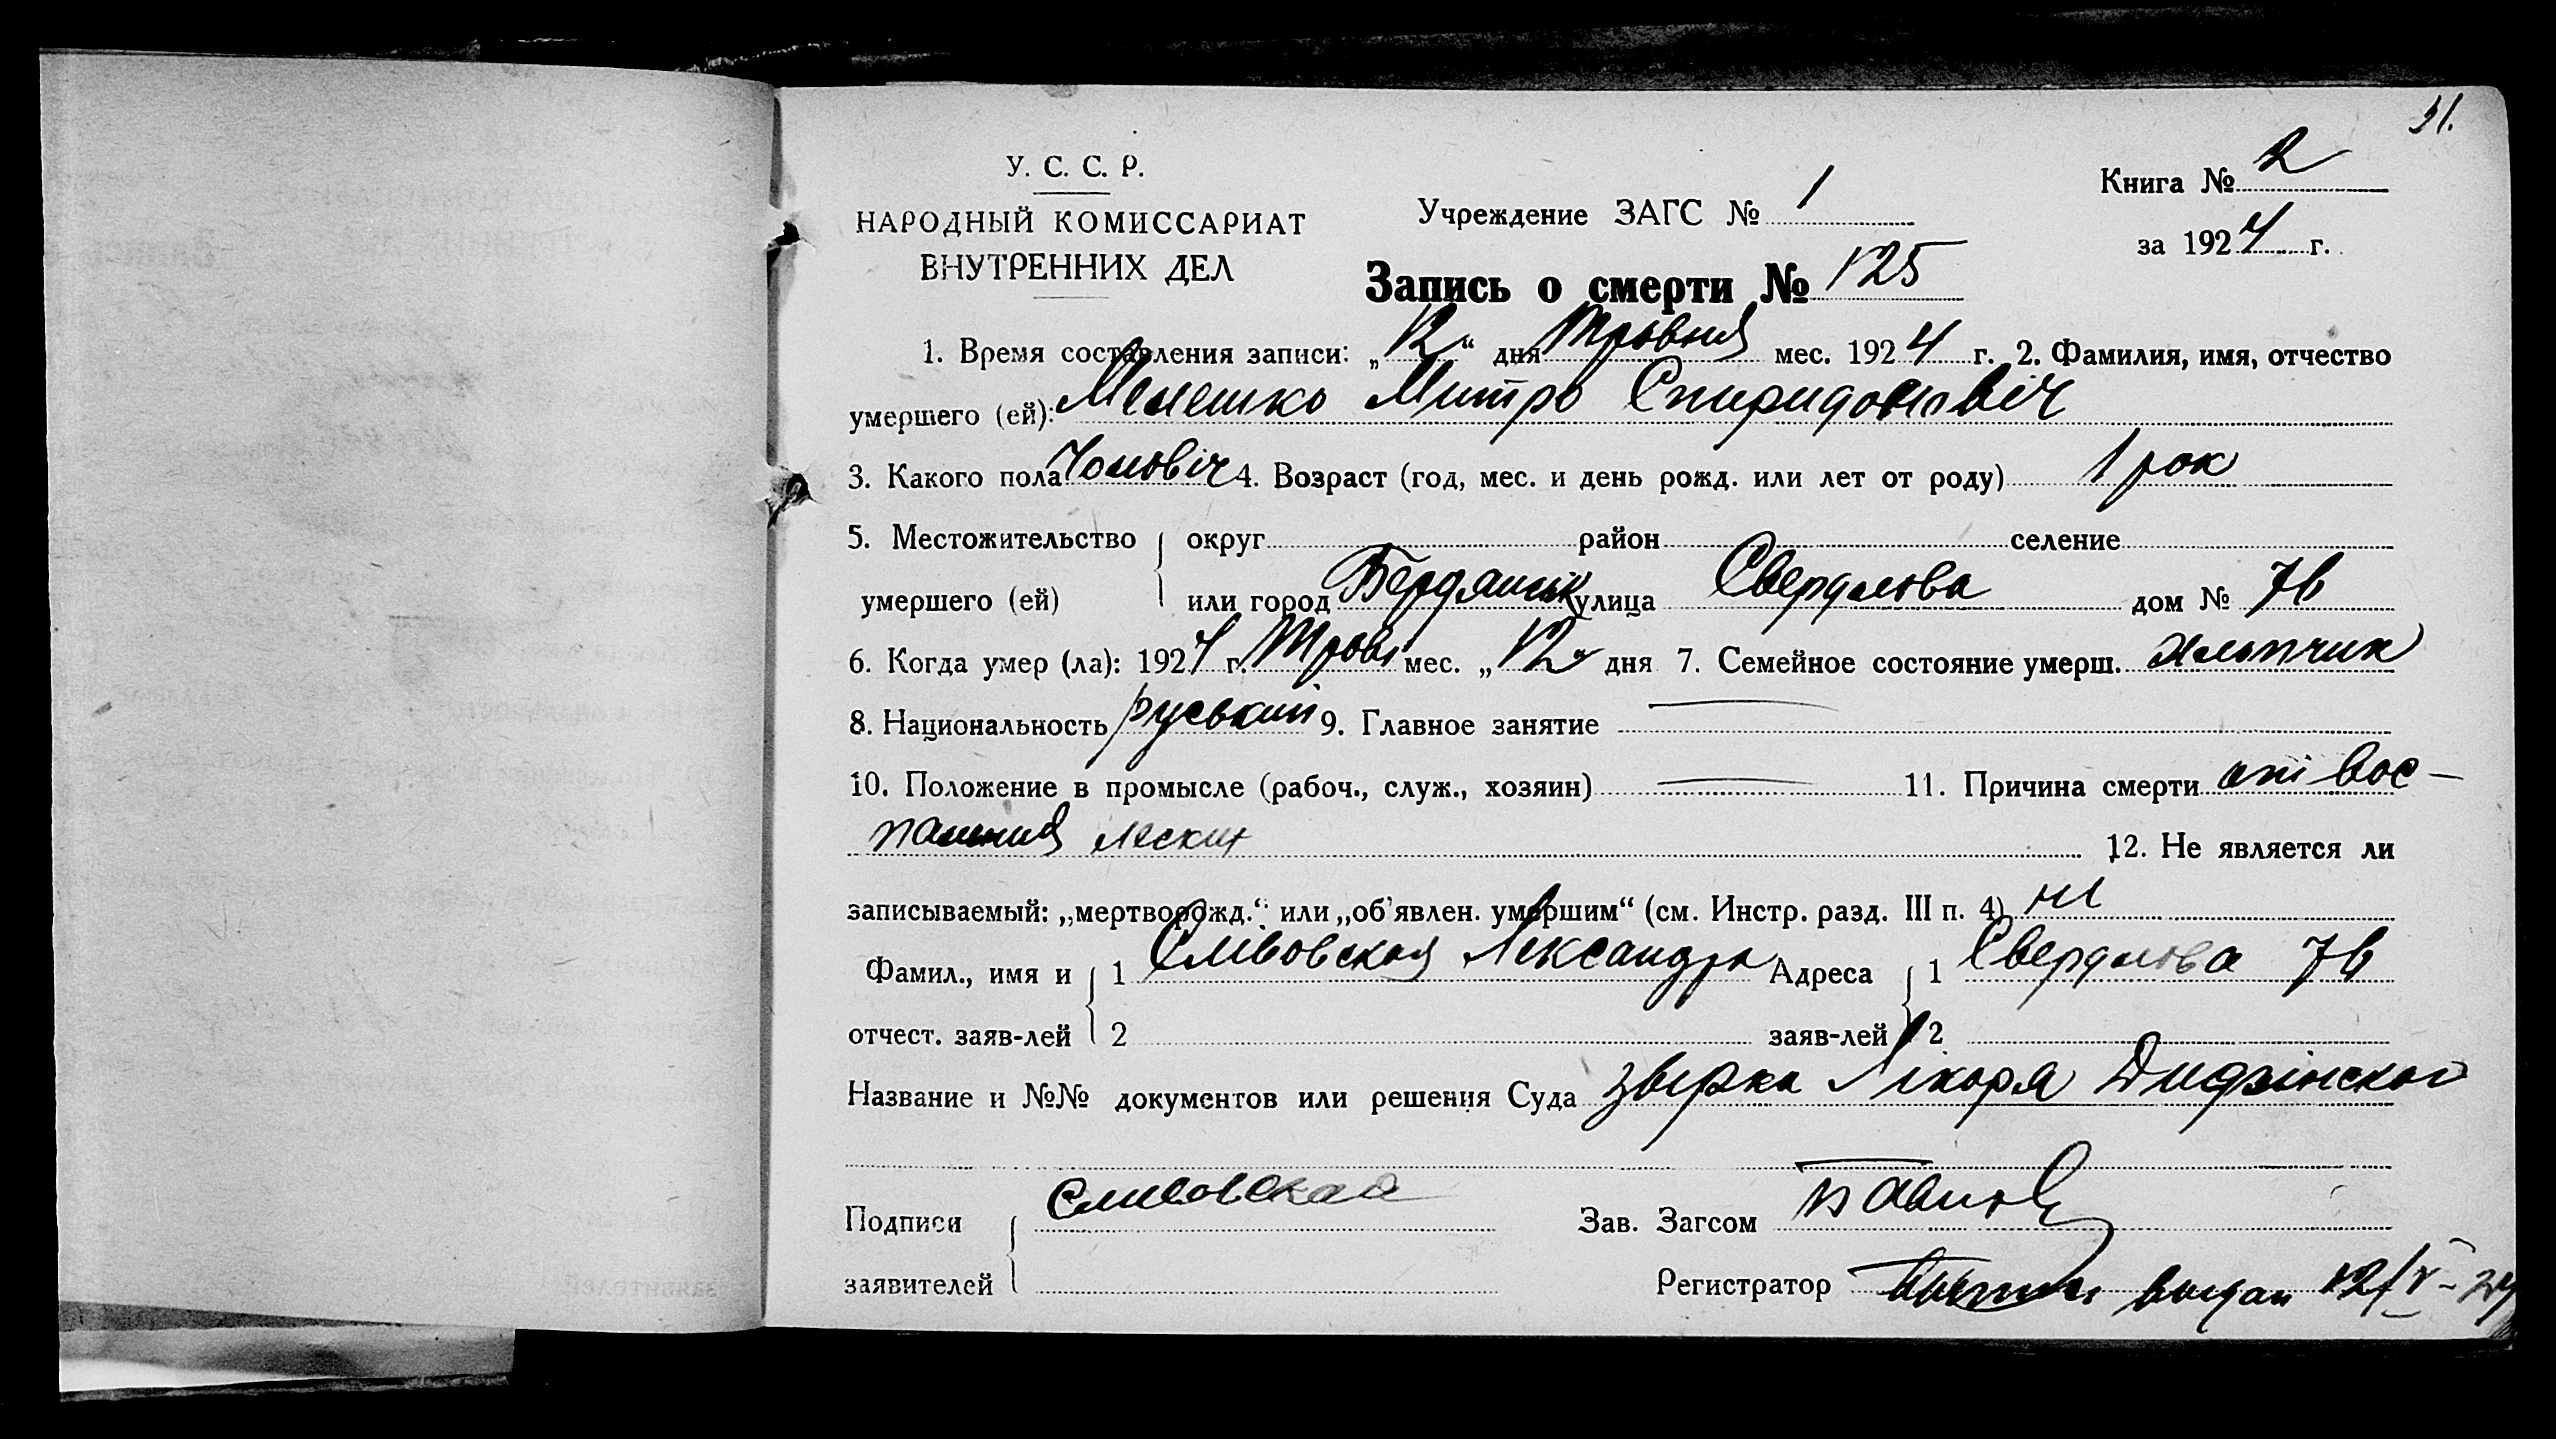 31.
У. С. С. Р.
НАРОДНЫЙ КОМИССАРИАТ
ВНУТРЕННИХ ДЕЛ
Учреждение ЗАГС № 1
Книга № 2
за 1924 г.
Запись о смерти № 125
1. Время составления записи: „12“ дня Травня мес. 1924 г. 2. Фамилия, имя, отчество
умершего (ей): Мелешко Митро Спиридоновіч
3. Какого пола Чоловіч 4. Возраст (год, мес. и день рожд. или лет от роду) 1 рок
5. Местожительство округ район селение
умершего (ей) или город Бердянськ улица Свердлова дом № 76
6. Когда умер (ла): 1924 г. Травн мес. „12“ дня 7. Семейное состояние умерш. хлопчик
8. Национальность руський 9. Главное занятие
10. Положение в промысле (рабоч., служ., хозяин) 11. Причина смерти от вос-
паления леских 12. Не является ли
записываемый: „мертворожд.“ или „об'явлен. умершим“ (см. Инстр. разд. III п. 4) ні
Фамил., имя и 1 Слівовская Александра Адреса 1 Свердлова 76
отчест. заяв-лей 2 заяв-лей 2
Название и №№ документов или решения Суда Лікаря
Подписи Сливовская Зав. Загсом
заявителей Регистратор выдан 12/V-24